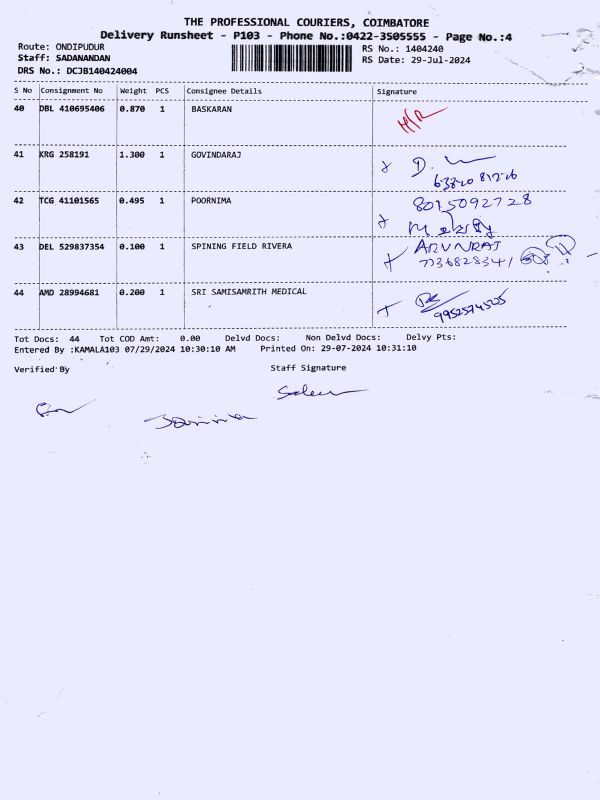 THE PROFESSIONAL COURIERS, COIMBATORE
Delivery Runsheet - P103 - Phone No.:0422-3505555 - Page No.:4
Route: ONDIPUDUR
RS No.: 1404240
Staff: SADANANDAN
RS Date: 29-Jul-2024
DRS No.: DCJB140424004
S No Consignment No Weight PCS Consignee Details Signature
40 DBL 410695406 0.870 1 BASKARAN
41 KRG 258191 1.300 1 GOVINDARAJ
42 TCG 41101565 0.495 1 POORNIMA 8015092728
43 DEL 529837354 0.100 1 SPINING FIELD RIVERA ARUNRAJ
7736828341
44 AMD 28994681 0.200 1 SRI SAMISAMRITH MEDICAL
9952574505
Tot Docs: 44 Tot COD Amt: 0.00 Delvd Docs: Non Delvd Docs: Delvy Pts:
Entered By :KAMALA103 07/29/2024 10:30:10 AM Printed On: 29-07-2024 10:31:10
Verified By Staff Signature